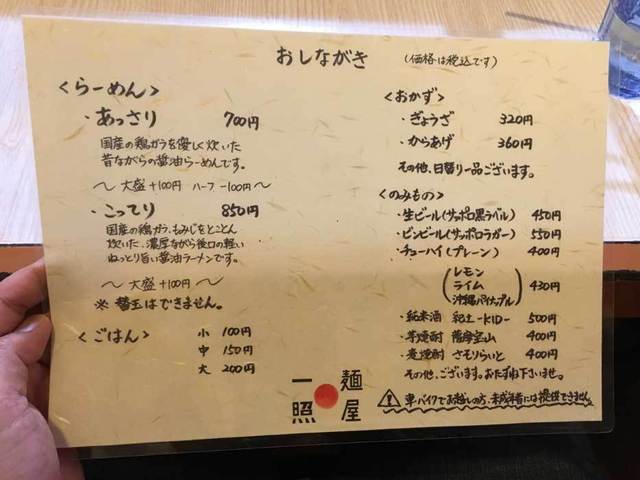 おしながき (価格は税込です)
<らーめん>
・あっさり 700円
国産の鶏ガラを優しく炊いた
昔ながらの醤油らーめんです。
〜大盛+100円 ハーフ-100円〜
・こってり 850円
国産の鶏ガラ、もみじをとことん
炊いた、濃厚ながら後口の軽い
ねっとり旨い醤油ラーメンです。
〜大盛+100円〜
※替玉はできません。
<ごはん> 小 100円
中 150円
大 200円
<おかず>
・ぎょうざ 320円
・からあげ 360円
その他、日替り一品ございます。
<のみもの>
・生ビール(サッポロ黒ラベル) 450円
・ビンビール(サッポロラガー) 550円
・チューハイ(プレーン) 400円
(レモン
ライム
沖縄パイナップル) 430円
・純米酒 紀土-KID- 500円
・芋焼酎 薩摩宝山 400円
・麦焼酎 さそりらいと 400円
その他、ございます。おたずね下さいませ。
⚠車・バイクでお越しの方、未成年者には提供できません
麺屋
一照